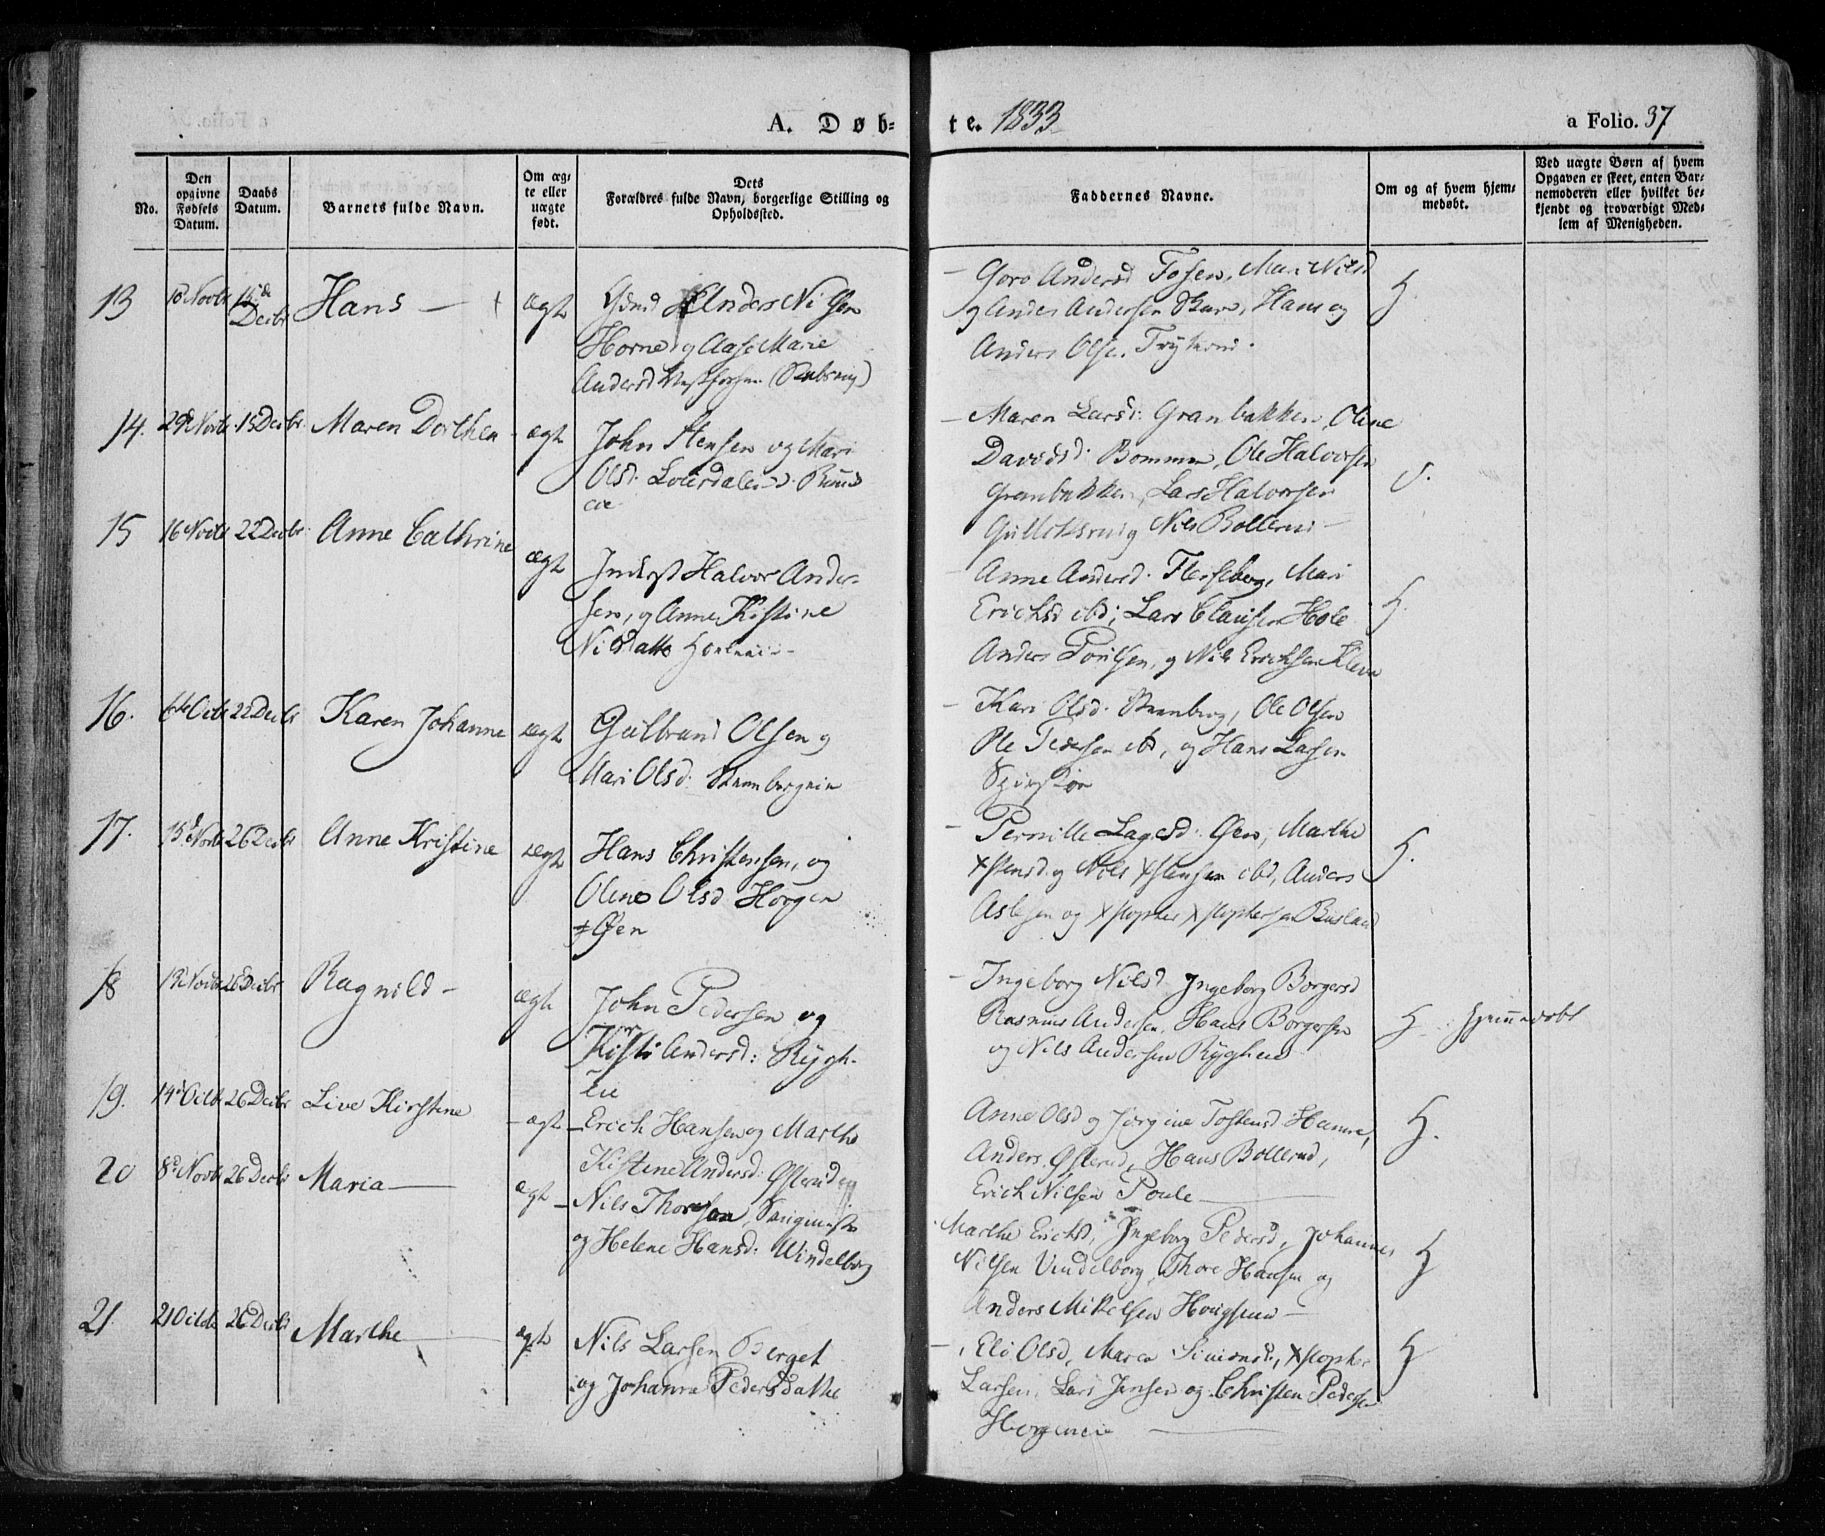 A. Døb- te. 1833
a Folio. 37
No.
Den opgivne Fødsels Datum.
Daabs Datum.
Barnets fulde Navn.
Om ægte eller uægte født.
Dets Forældres fulde Navn, borgerlige Stilling og Opholdssted.
Faddernes Navne.
Om og af hvem hjemmedøbt.
Ved uægte Børn af hvem Opgaven er skeet, enten Barnemoderen eller hvilket bekjendt og troværdigt Medlem af Menigheden.
13 Hans — ægte
Anders Nilsen
Horne og Aase Marie
Andersd
Goro Andersd Fosen, Mari Nilsd
og Anders Andersen Skare, Hans og
Anders Olsen
H.
14. 29 Novbr 15 Decbr. Maren Dorthea ægte
John Stensen og Mari
Olsd.
eie
Maren Larsd. Granbakken, Oline
Davidsd. Bommen, Ole Halvorsen
Granbakken, Lars Halvorsen
og Nils Bollerud —
15 16 Novbr 22 Decbr. Anne Cathrine ægte
Inderst Halvor Ander-
sen, og Anne Kistine
Nilsdatte
Anne Andersd. Flesseberg, Mari
Erichsd ibd; Lars Clausen Hole
Anders Poulsen, og Nils Erichsen Kleven
H.
16. 6te Octb 22 Decbr Karen Johanne ægte
Gulbrand Olsen og
Mari Olsd.
Kari Olsd. Ole Olsen
Ole Pedersen ibd, og Hans Larsen
17. 15d Novbr 26 Decbr Anne Kristine ægte
Hans Christensen, og
Oline Olsd Horgen
Øen
Pernille Lagesd. Øen, Marthe
Xstensd. og Nils Xstensen ibd, Anders
Aslesen og Xstopher Xstophersen
H.
18 Novbr 26 Decbr Ragnild — ægte
John Pedersen og
Kirsti Andersd: Rygh-
eie
Ingeborg Nilsd. Ingeborg Borgersd
Rasmus Andersen, Hans Borgersen
og Nils Andersen Rygheie
H. Hjemmedøbt
19. 14d Octbr 26 Decbr Live Kirstine — ægte
Erich Hansen og Marthe
Kistine Andersd: Østerud
Anne Olsd og Jørgine Tostensd Hamre,
Anders Østerud, Hans Bollerud,
Erich Nilsen Poule —
H.
20 8d Novbr 26 Decbr Maria — ægte
Nils Thoresen,
og Helene Hansd: Windelborg
Marthe Erichsd, Ingeborg Pedersd, Johannes
Nilsen Vindelborg, Thore Hansen og
Anders Mikelsen —
H
21. 21 Octbr 26 Decbr Marthe — ægte
Nils Larsen Berget
og Johanne Pedersdatte
Eli Olsd, Maren Simonsd., Xstopher
Larsen, Lars Jensen og Christen Pedersen
Horgeneie —
H